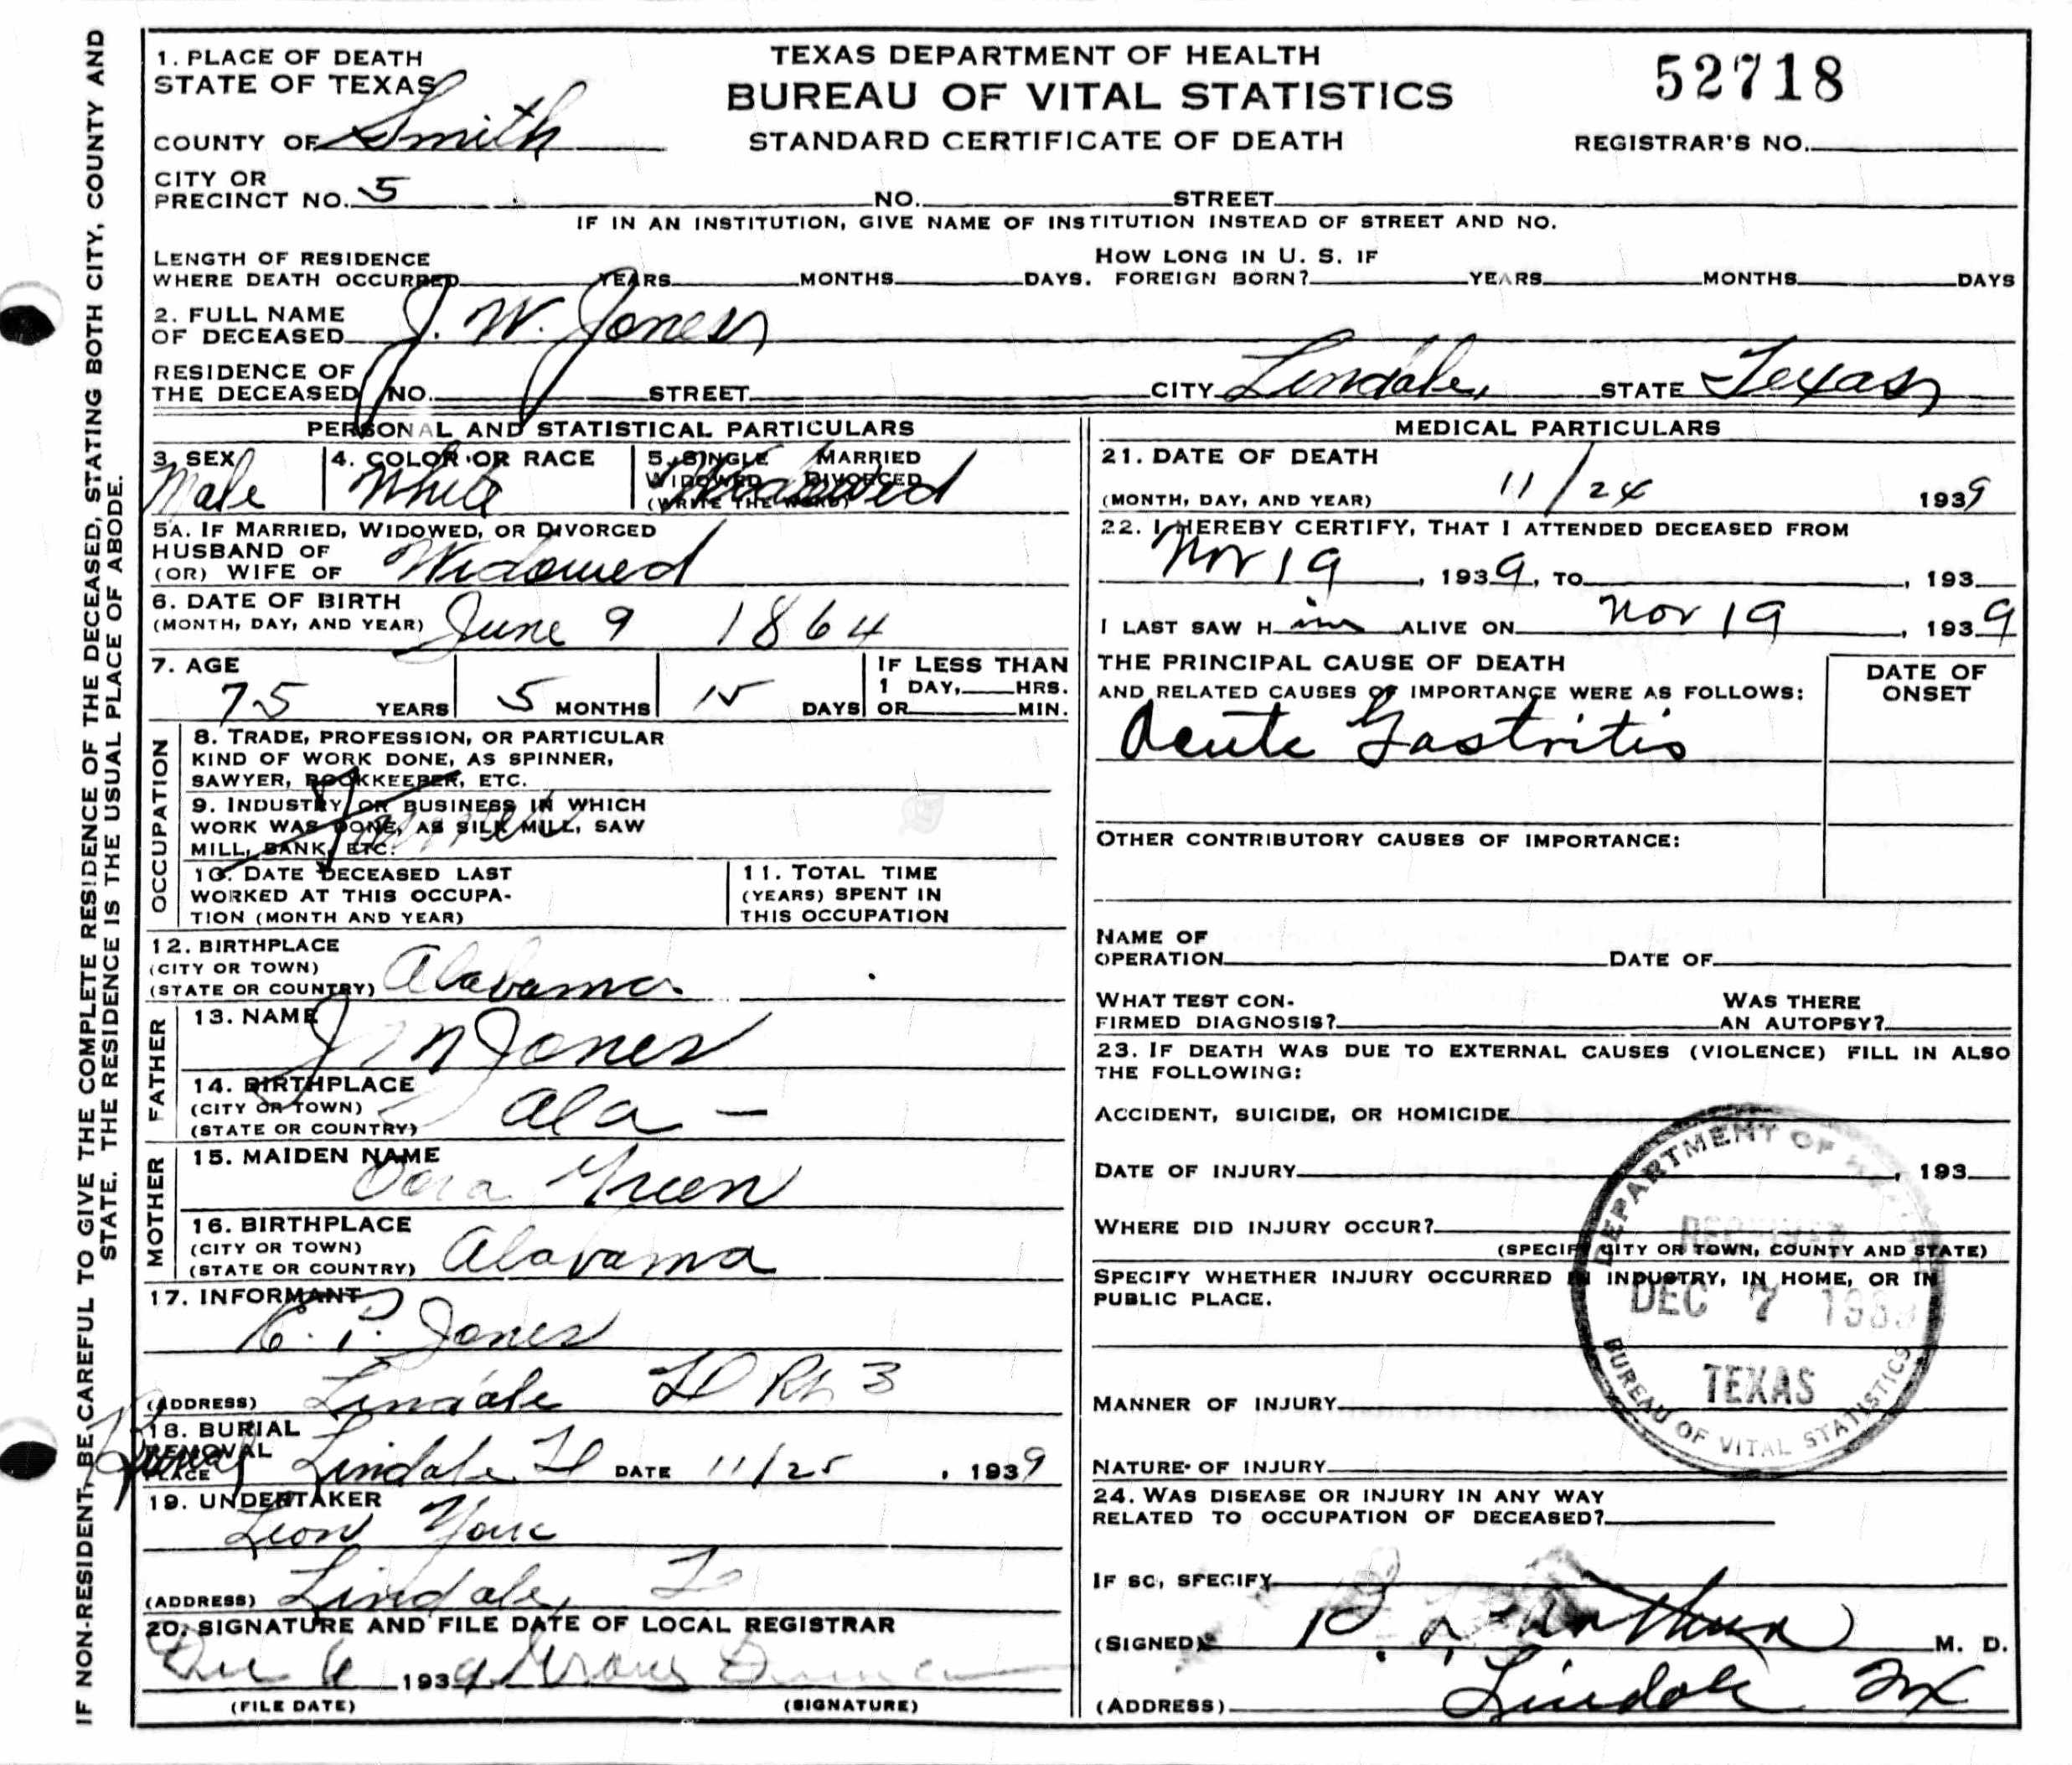 IF NON-RESIDENT, BE CAREFUL TO GIVE THE COMPLETE RESIDENCE OF THE DECEASED, STATING BOTH CITY, COUNTY AND
STATE. THE RESIDENCE IS THE USUAL PLACE OF ABODE.
1. PLACE OF DEATH
STATE OF TEXAS
TEXAS DEPARTMENT OF HEALTH
BUREAU OF VITAL STATISTICS
STANDARD CERTIFICATE OF DEATH
52718
REGISTRAR'S NO.
COUNTY OF Smith
CITY OR
PRECINCT NO. 5 NO. STREET
IF IN AN INSTITUTION, GIVE NAME OF INSTITUTION INSTEAD OF STREET AND NO.
LENGTH OF RESIDENCE
WHERE DEATH OCCURRED YEARS MONTHS DAYS.
HOW LONG IN U. S. IF
FOREIGN BORN? YEARS MONTHS DAYS
2. FULL NAME
OF DECEASED J. W. Jones
RESIDENCE OF
THE DECEASED NO. STREET CITY Lindale, STATE Texas
PERSONAL AND STATISTICAL PARTICULARS
3. SEX
Male
4. COLOR OR RACE
White
5. SINGLE MARRIED
WIDOWED DIVORCED
(WRITE THE WORD)
Widowed
5A. IF MARRIED, WIDOWED, OR DIVORCED
HUSBAND OF
(OR) WIFE OF Widowed
6. DATE OF BIRTH
(MONTH, DAY, AND YEAR) June 9 1864
7. AGE
75 YEARS 5 MONTHS 15 DAYS
IF LESS THAN
1 DAY, HRS.
OR MIN.
OCCUPATION
8. TRADE, PROFESSION, OR PARTICULAR
KIND OF WORK DONE, AS SPINNER,
SAWYER, BOOKKEEPER, ETC.
9. INDUSTRY OR BUSINESS IN WHICH
WORK WAS DONE, AS SILK MILL, SAW
MILL, BANK, ETC.
Farmer
10. DATE DECEASED LAST
WORKED AT THIS OCCUPA-
TION (MONTH AND YEAR)
11. TOTAL TIME
(YEARS) SPENT IN
THIS OCCUPATION
12. BIRTHPLACE
(CITY OR TOWN)
(STATE OR COUNTRY) Alabama
FATHER
13. NAME
Jones
14. BIRTHPLACE
(CITY OR TOWN)
(STATE OR COUNTRY) Ala -
MOTHER
15. MAIDEN NAME
Green
16. BIRTHPLACE
(CITY OR TOWN)
(STATE OR COUNTRY) Alabama
17. INFORMANT
Jones
(ADDRESS) Lindale Rt 3
18. BURIAL
REMOVAL
PLACE Lindale DATE 11/25, 1939
Burial
19. UNDERTAKER
Leon
(ADDRESS) Lindale,
20. SIGNATURE AND FILE DATE OF LOCAL REGISTRAR
Dec 6 1939
(FILE DATE) (SIGNATURE)
MEDICAL PARTICULARS
21. DATE OF DEATH
(MONTH, DAY, AND YEAR) 11/24 1939
22. I HEREBY CERTIFY, THAT I ATTENDED DECEASED FROM
Nov 19, 1939, TO , 193
I LAST SAW H im ALIVE ON Nov 19, 1939
THE PRINCIPAL CAUSE OF DEATH
AND RELATED CAUSES OF IMPORTANCE WERE AS FOLLOWS:
DATE OF
ONSET
Acute Gastritis
OTHER CONTRIBUTORY CAUSES OF IMPORTANCE:
NAME OF
OPERATION DATE OF
WHAT TEST CON-
FIRMED DIAGNOSIS?
WAS THERE
AN AUTOPSY?
23. IF DEATH WAS DUE TO EXTERNAL CAUSES (VIOLENCE) FILL IN ALSO
THE FOLLOWING:
ACCIDENT, SUICIDE, OR HOMICIDE
DATE OF INJURY , 193
WHERE DID INJURY OCCUR?
(SPECIFY CITY OR TOWN, COUNTY AND STATE)
SPECIFY WHETHER INJURY OCCURRED IN INDUSTRY, IN HOME, OR IN
PUBLIC PLACE.
DEPARTMENT OF
DEC 7 1939
TEXAS
BUREAU OF VITAL STATISTICS
MANNER OF INJURY
NATURE OF INJURY
24. WAS DISEASE OR INJURY IN ANY WAY
RELATED TO OCCUPATION OF DECEASED?
IF SO, SPECIFY
(SIGNED) M. D.
(ADDRESS) Lindale Tex